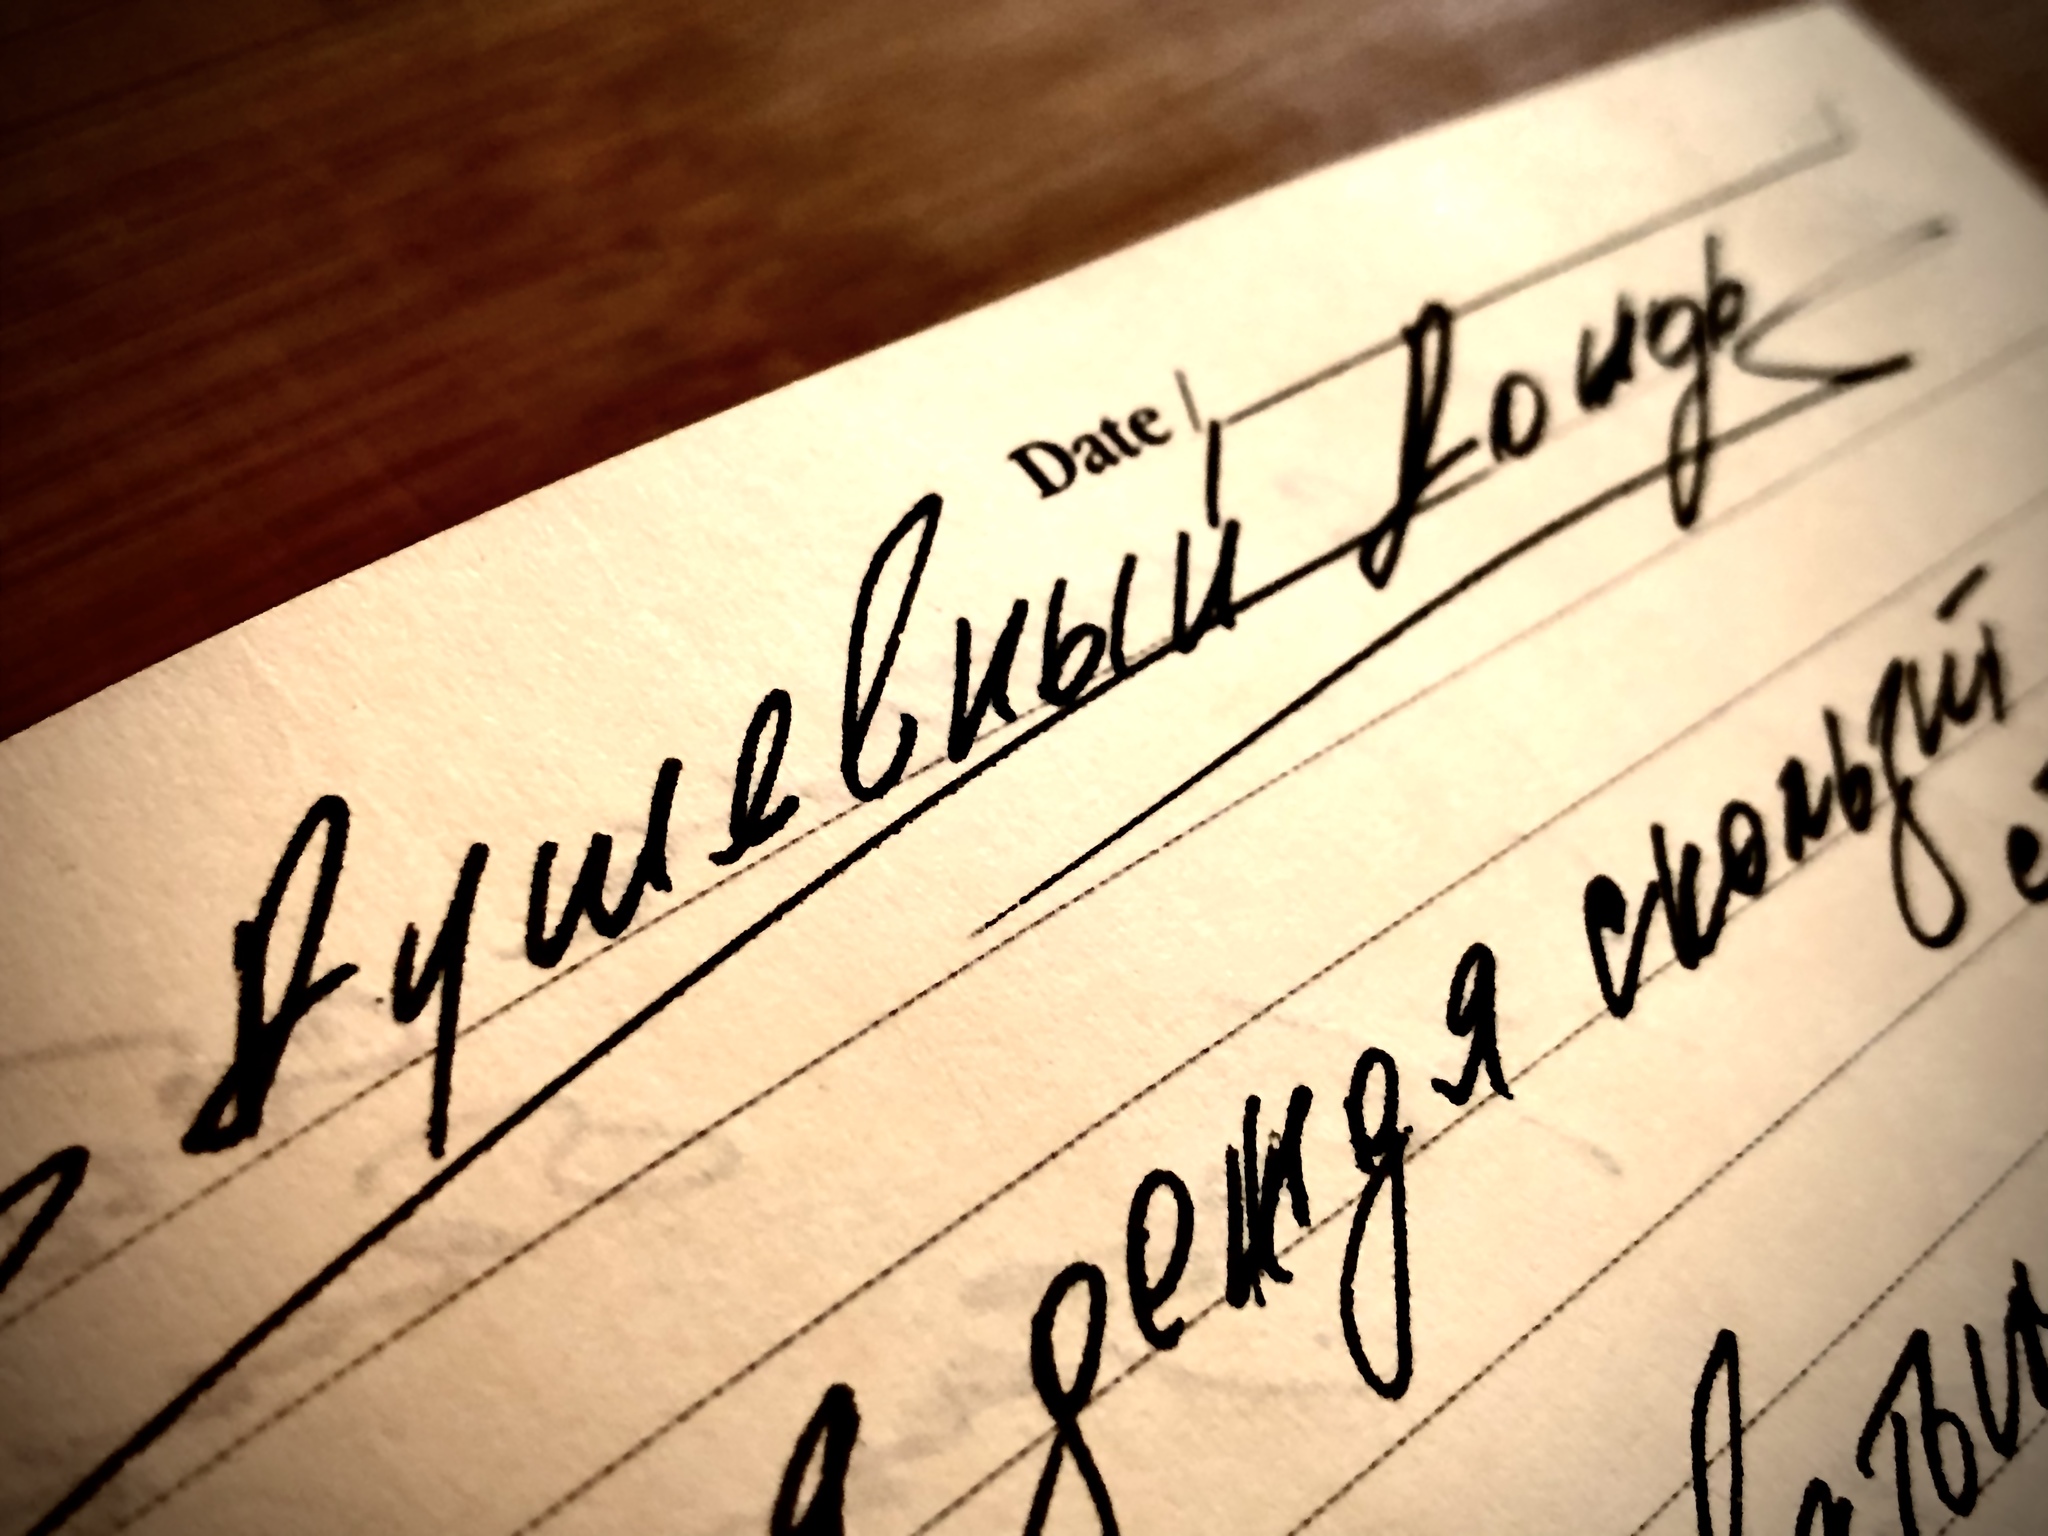 Date
Душевный Дождь
дождя скользит